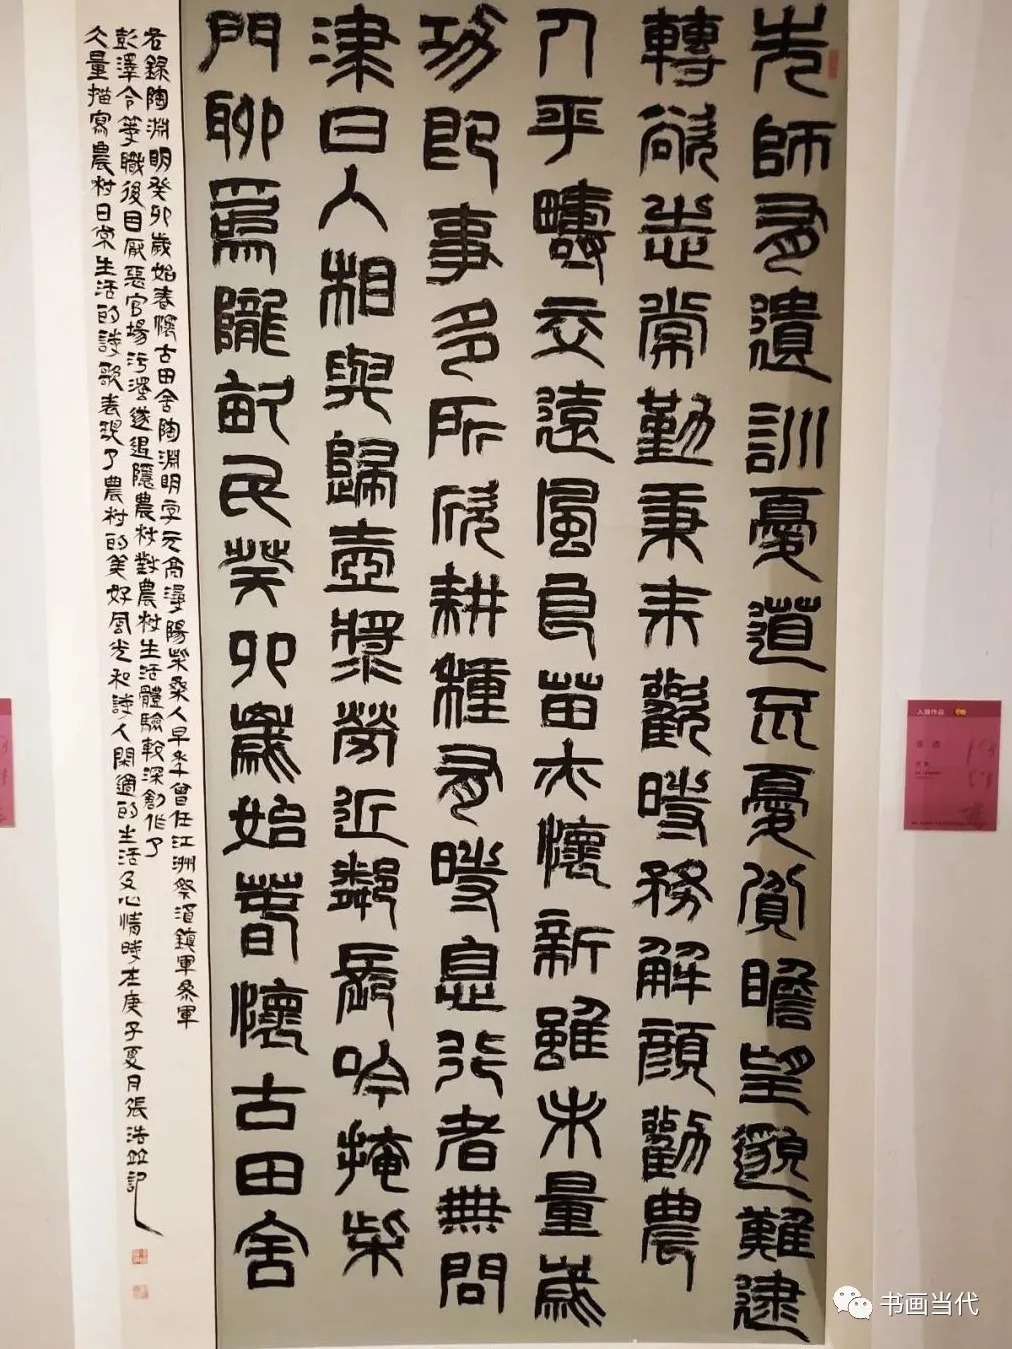 先師有遺訓憂道不憂貧瞻望邈難逮
轉欲志常勤秉耒歡時務解顏勸農
人平疇交遠風良苗亦懷新雖未量歲
功即事多所欣耕種有時息行者無問
津日入相與歸壺漿勞近鄰長吟掩柴
門聊爲隴畝民癸卯歲始春懷古田舍
右錄陶淵明癸卯歲始春懷古田舍陶淵明字元亮潯陽柴桑人早年曾任江洲祭酒鎮軍參軍
彭澤令等職後因厭惡官場污濁遂退隱農村對農村生活體驗較深創作了
大量描寫農村日常生活的詩歌表現了農村的美好風光和詩人閑適的生活及心情時在庚子夏月張浩並記
入展作品
书画当代